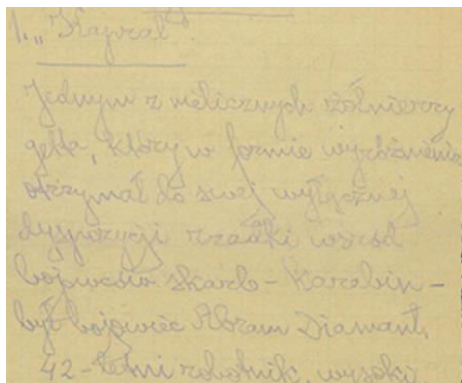 1. „Kapral".
Jednym z nielicznych żołnierzy
getta, który w formie wyróżnienia
otrzymał do swej wyłącznej
dyspozycji rzadki wśród
bojowców skarb – karabin –
był bojowiec Abram Diamant,
42-letni robotnik, wysoki